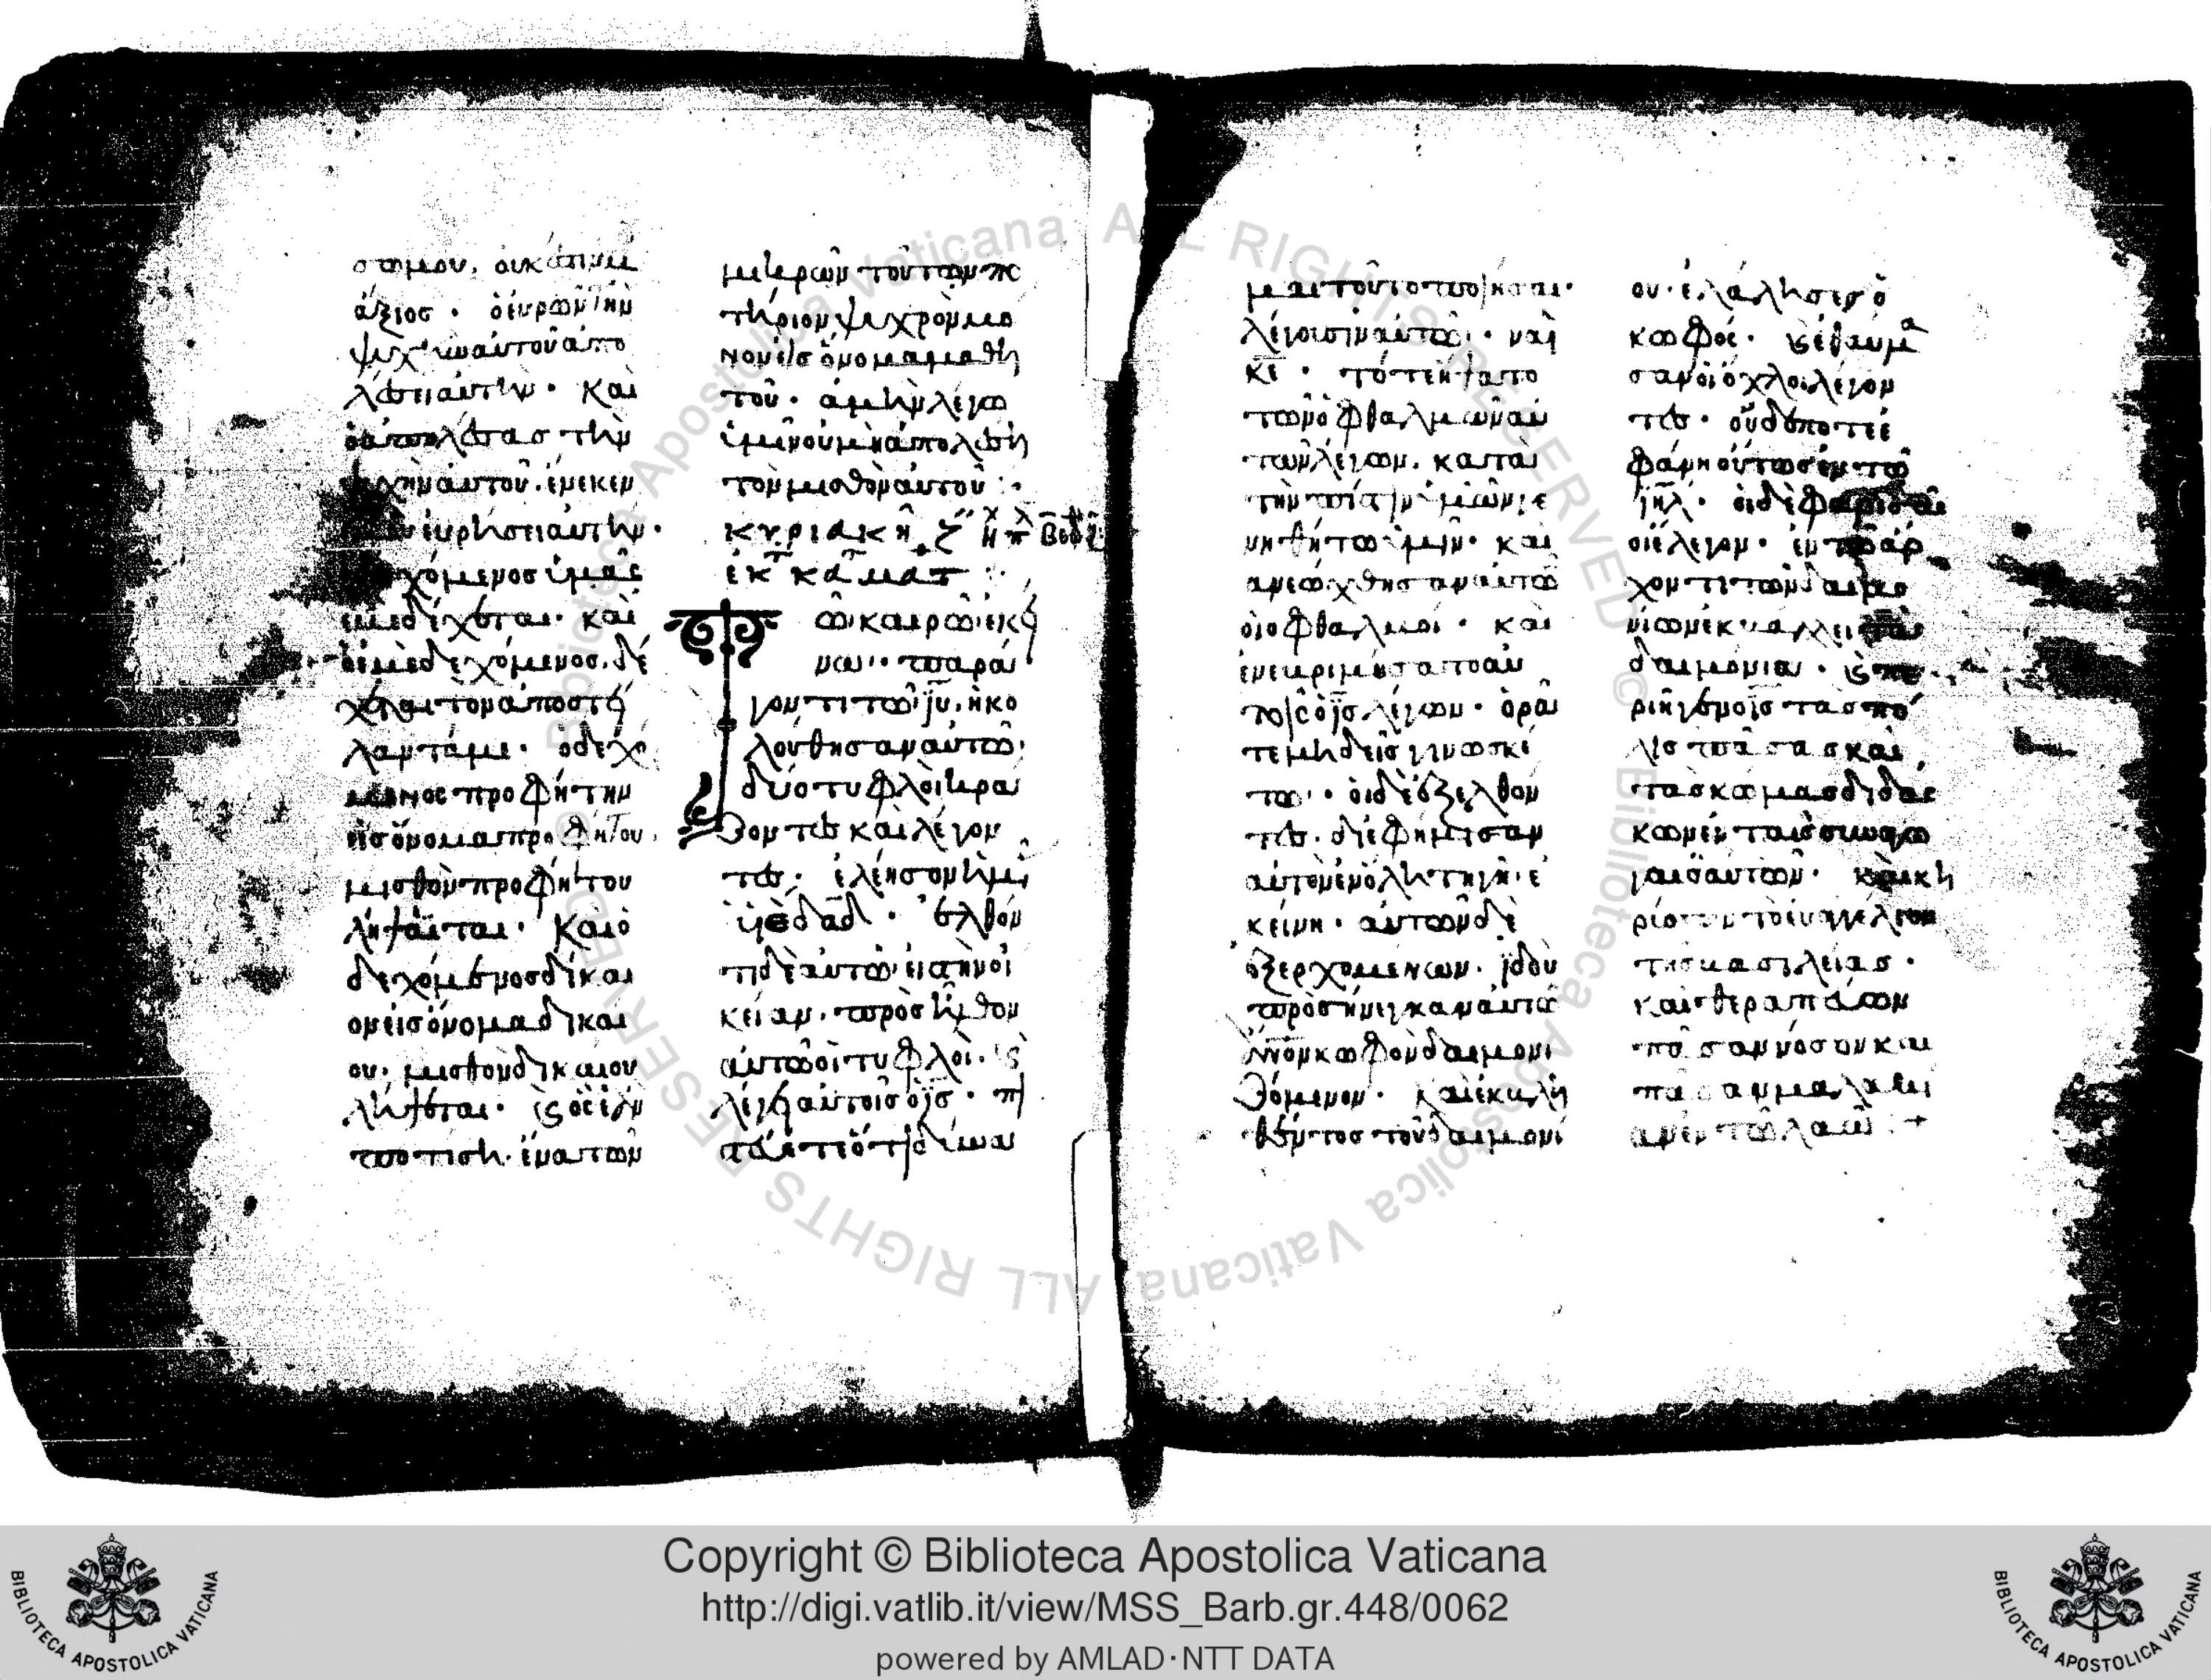 στιν μου, οὐκ ἔστι μου
ἄξιος · ὁ εὑρὼν τὴν
ψυχὴν αὐτοῦ ἀπο
λέσει αὐτήν · Καὶ
ὁ ἀπολέσας τὴν
ψυχὴν αὐτοῦ. ἕνεκεν
εὑρήσει αὐτήν ·
χόμενος ὑμᾶς
ἐμὲ δέχεται · καὶ
ὁ ἐμὲ δεχόμενος. δέ
χεται τὸν ἀποστεί
λαντά με · ὁ δεχό
μενος προφήτην
εἰς ὄνομα προφήτου,
μισθὸν προφήτου
λήψεται · Καὶ ὁ
δεχόμενος δίκαι
ον εἰς ὄνομα δικαί
ου, μισθὸν δικαίου
λήψεται · ϗ ὃς ἐὰν
ποτίση. ἕνα τῶν
μικρῶν τούτων πο
τήριον ψυχροῦ μό
νον εἰς ὄνομα μαθη
τοῦ · ἀμὴν λέγω
ὑμῖν οὐ μὴ ἀπολέση
τὸν μισθὸν αὐτοῦ :·
κυριακῆ ζ
ἐκ τ κατ ματθ :·
Τῶ καιρῶ ἐκεί
νω · παρά
γοντι τῶ ιυ, ἠκο
λούθησαν αὐτῶ ·
δύο τυφλοὶ κρά
ζοντες καὶ λέγον
τες, ἐλέησον ἡμᾶς
υἱὲ δαδ · ἐλθόν
τι δὲ αὐτῶ εἰς τὴν οἰ
κίαν, προσῆλθον
αὐτῶ οἱ τυφλοί · ϗ
λέγει αὐτοῖς ὁ ις · πι
στεύετε ὅτι δύνα
μαι τοῦτο ποιῆσαι ·
λέγουσιν αὐτῶ · ναὶ
κε · τότε ἥψατο
τῶν ὀφθαλμῶν αὐ
τῶν λέγων. κατὰ
τὴν πίστιν ὑμῶν γε
νηθήτω ὑμῖν · καὶ
ἀνεώχθησαν αὐτῶν
οἱ ὀφθαλμοί · καὶ
ἐνεβριμήσατο αὐ
τοῖς ὁ ις λέγων · ὁρᾶ
τε μηδεὶς γινωσκέ
τω · οἱ δὲ ἐξελθόν
τες. διεφήμισαν
αὐτὸν ἐν ὅλη τῆ γῆ ἐ
κείνη · αὐτῶν δὲ
ἐξερχομένων. ἰδοὺ
προσήνεγκαν αὐτῶ
ἄνον κωφὸν δαιμονι
ζόμενον · καὶ ἐκβλη
θέντος τοῦ δαιμονί
ου · ἐλάλησεν ὁ
κωφός · ϗ ἐθαύμα
σαν οἱ ὄχλοι λέγον
τες · οὐδέποτε ἐ
φάνη οὕτως ἐν τῶ
ιηλ · οἱ δὲ φαρισαῖ
οι ἔλεγον · ἐν τῶ ἄρ
χοντι τῶν δαιμο
νίων ἐκβάλλει τὰ
δαιμόνια · ϗ πε
ριῆγεν ὁ ις τὰς πό
λεις πάσας καὶ
τὰς κώμας διδάσ
κων ἐν ταῖς συναγω
γαῖς αὐτῶν · καὶ κη
ρύσσων τὸ εὐαγγέλιον
τῆς βασιλείας ·
καὶ θεραπεύων
πᾶσαν νόσον καὶ
πᾶσαν μαλακί
αν ἐν τῶ λαῶ :+
Copyright © Biblioteca Apostolica Vaticana
http://digi.vatlib.it/view/MSS_Barb.gr.448/0062
powered by AMLAD·NTT DATA
BIBLIOTECA APOSTOLICA VATICANA
BIBLIOTECA APOSTOLICA VATICANA